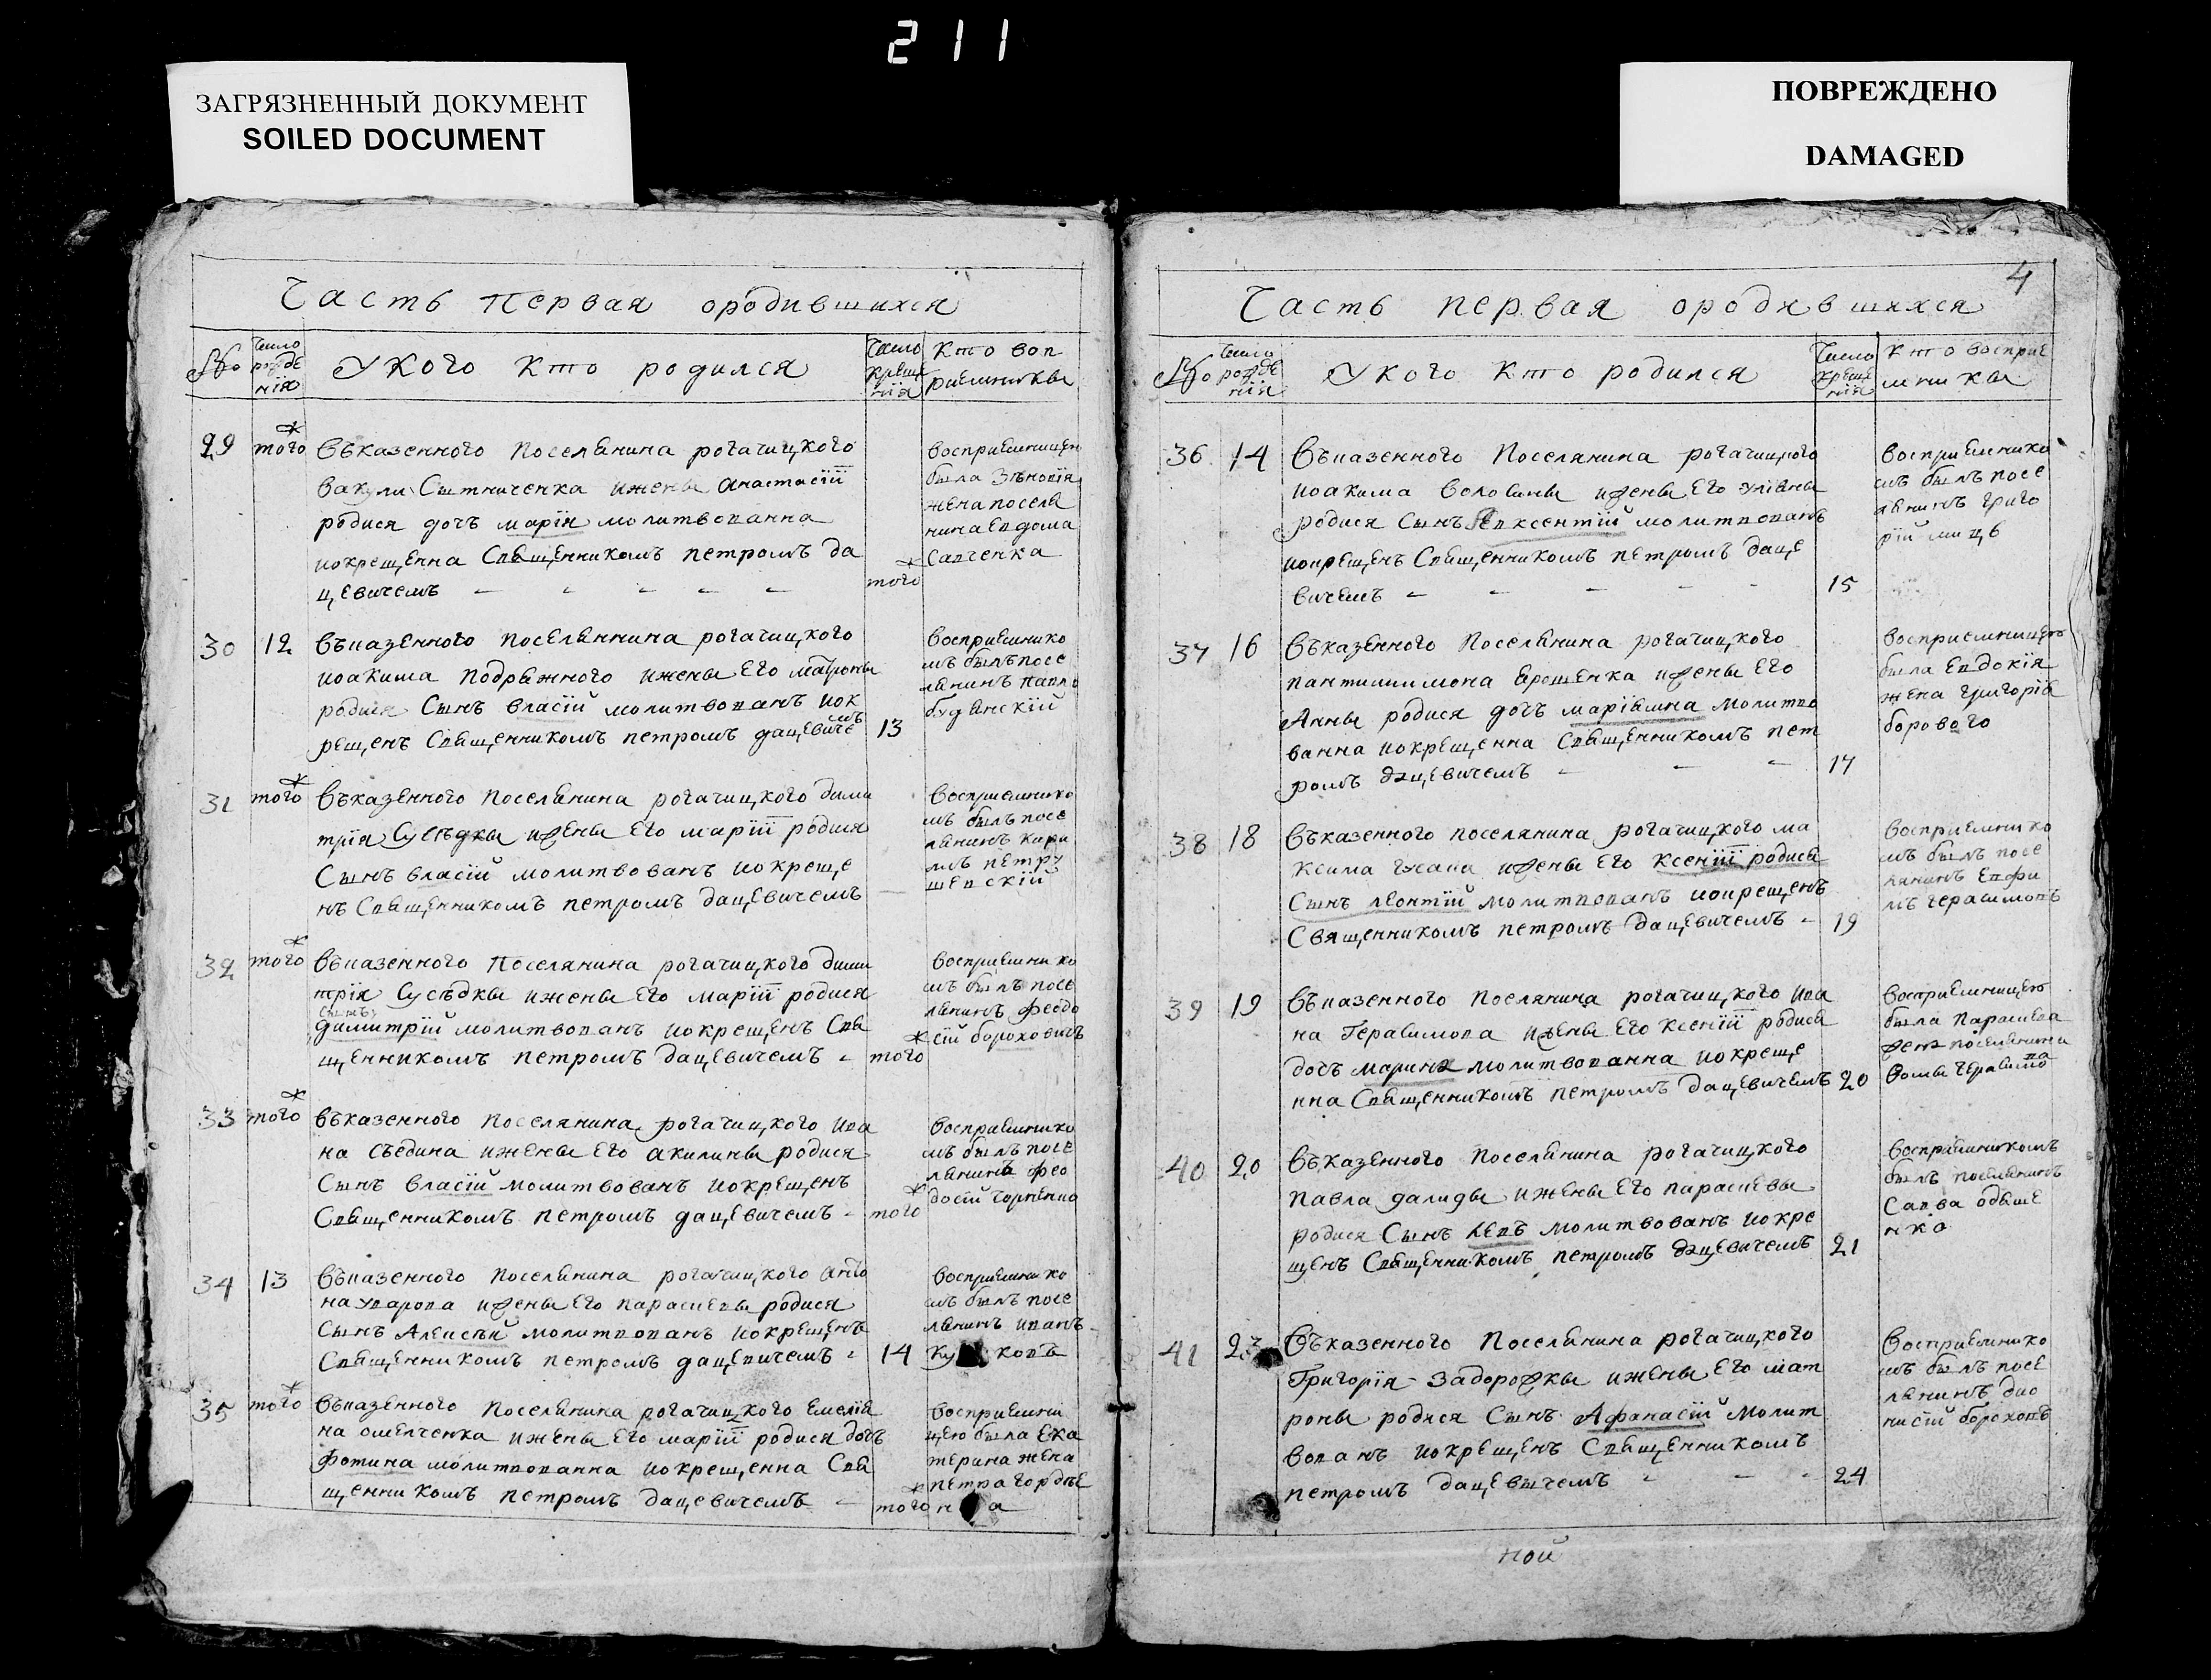 211
ЗАГРЯЗНЕННЫЙ ДОКУМЕНТ
SOILED DOCUMENT
ПОВРЕЖДЕНО
DAMAGED
Часть первая ородившихся
№
Число рожде нїя
Укого кто родился
Число креще нїя
Кто воп риемникы
29 того
Въказенного Поселянина рогачицкого
вакули Сытниченка ижены анастасїи
родися дочь марїя молитвованна
икрещенна Священникомъ петромъ да
цевичемъ
того
восприемницею
была Зѣновїя
жена поселя
нина Евдома
Савченка
30 12
Въказенного поселяннина рогачицкого
иоакима Подряжного ижены Его матроны
родися Сынъ власїй молитвованъ иок
рещенъ Священникомъ петромъ дацевиче
мъ
13
восприемнико
мъ былъ посе
лянинъ павло
будянскїй
31 того
Въказенного Поселянина рогачицкого дими
трїя Сусѣдкы ижены Его марїи родися
Сынъ власїй молитвованъ иокреще
нъ Священникомъ петромъ дацевичемъ
восприемнико
мъ былъ посе
лянинъ кири
лъ петру
шевскїй
32 того
Въказенного Поселянина рогачицкого дими
трїя Сусѣдкы ижены Его марїи родися
сынъ
димитрїй молитвованъ иокрещенъ Свя
щенникомъ петромъ дацевичемъ
того
восприемнико
мъ былъ посе
лянинъ феодо
сїй бороховичъ
33 того
Въказенного Поселянина рогачицкого ива
на Съедина ижены Его акилины родися
Сынъ власїй молитвованъ иокрещенъ
Священникомъ петромъ дацевичемъ
того
восприемнико
мъ былъ посе
лянинъ фео
досїй
34 13
Въказенного Поселянина рогачицкого анто
на уварова ижены Его параскевы родися
Сынъ Алексѣй молитвованъ иокрещенъ
Священникомъ петромъ дацевичемъ
14
восприемнико
мъ былъ посе
лянинъ иванъ
35 того
Въказенного Поселянина рогачицкого Емелїя
на омелченка ижены Его марїи родися дочь
Фотина молитвованна иокрещенна Свя
щенникомъ петромъ дацевичемъ
того
восприемни
цею была Ека
терина жена
петра гордѣе
4
Часть первая ородившихся
№
Число рожде нїя
Укого кто родился
Число креще нїя
Кто восприе мникы
36 14
Въказенного Поселянина рогачицкого
иоакима Воловины ижены Его улїяны
родися Сынъ Авксентїй молитвованъ
иокрещенъ Священникомъ петромъ даце
вичемъ
15
восприемнико
мъ былъ посе
лянинъ григо
рїй
37 16
Въказенного Поселянина рогачицкого
пантилимона Ярошенка ижены Его
Анны родися дочь марїямна молитво
ванна иокрещенна Священникомъ пет
ромъ дацевичемъ
17
восприемницею
была Евдокїя
жена григорїя
борового
38 18
Въказенного поселянина рогачицкого ма
ксима ижены Его ксенїи родися
Сынъ леонтїй молитвованъ иокрещенъ
Священникомъ петромъ дацевичемъ
19
восприемнико
мъ былъ посе
лянинъ Евфи
мъ герасимовъ
39 19
Въказенного Послянина рогачицкого ива
на Герасимова ижены Его ксенїи родися
дочь марина молитвованна иокреще
нна Священникомъ петромъ дацевичемъ
20
восприемницею
была параскева
жена поселянина
Фомы герасимо
ва
40 20
Въказенного Поселянина рогачицкого
Павла далиды ижены Его параскевы
родися Сынъ левъ молитвованъ иокре
щенъ Священникомъ петромъ дацевичемъ
21
восприемникомъ
былъ поселянинъ
Савва одыне
нко
41 23
Въказенного Поселянина рогачицкого
Григорїя Задорожкы ижены Его мат
роны родися Сынъ Афанасїй молит
вованъ иокрещенъ Священникомъ
петромъ дацевычемъ
24
восприемнико
мъ былъ посе
лянинъ дио
нисїй бороховъ
ной